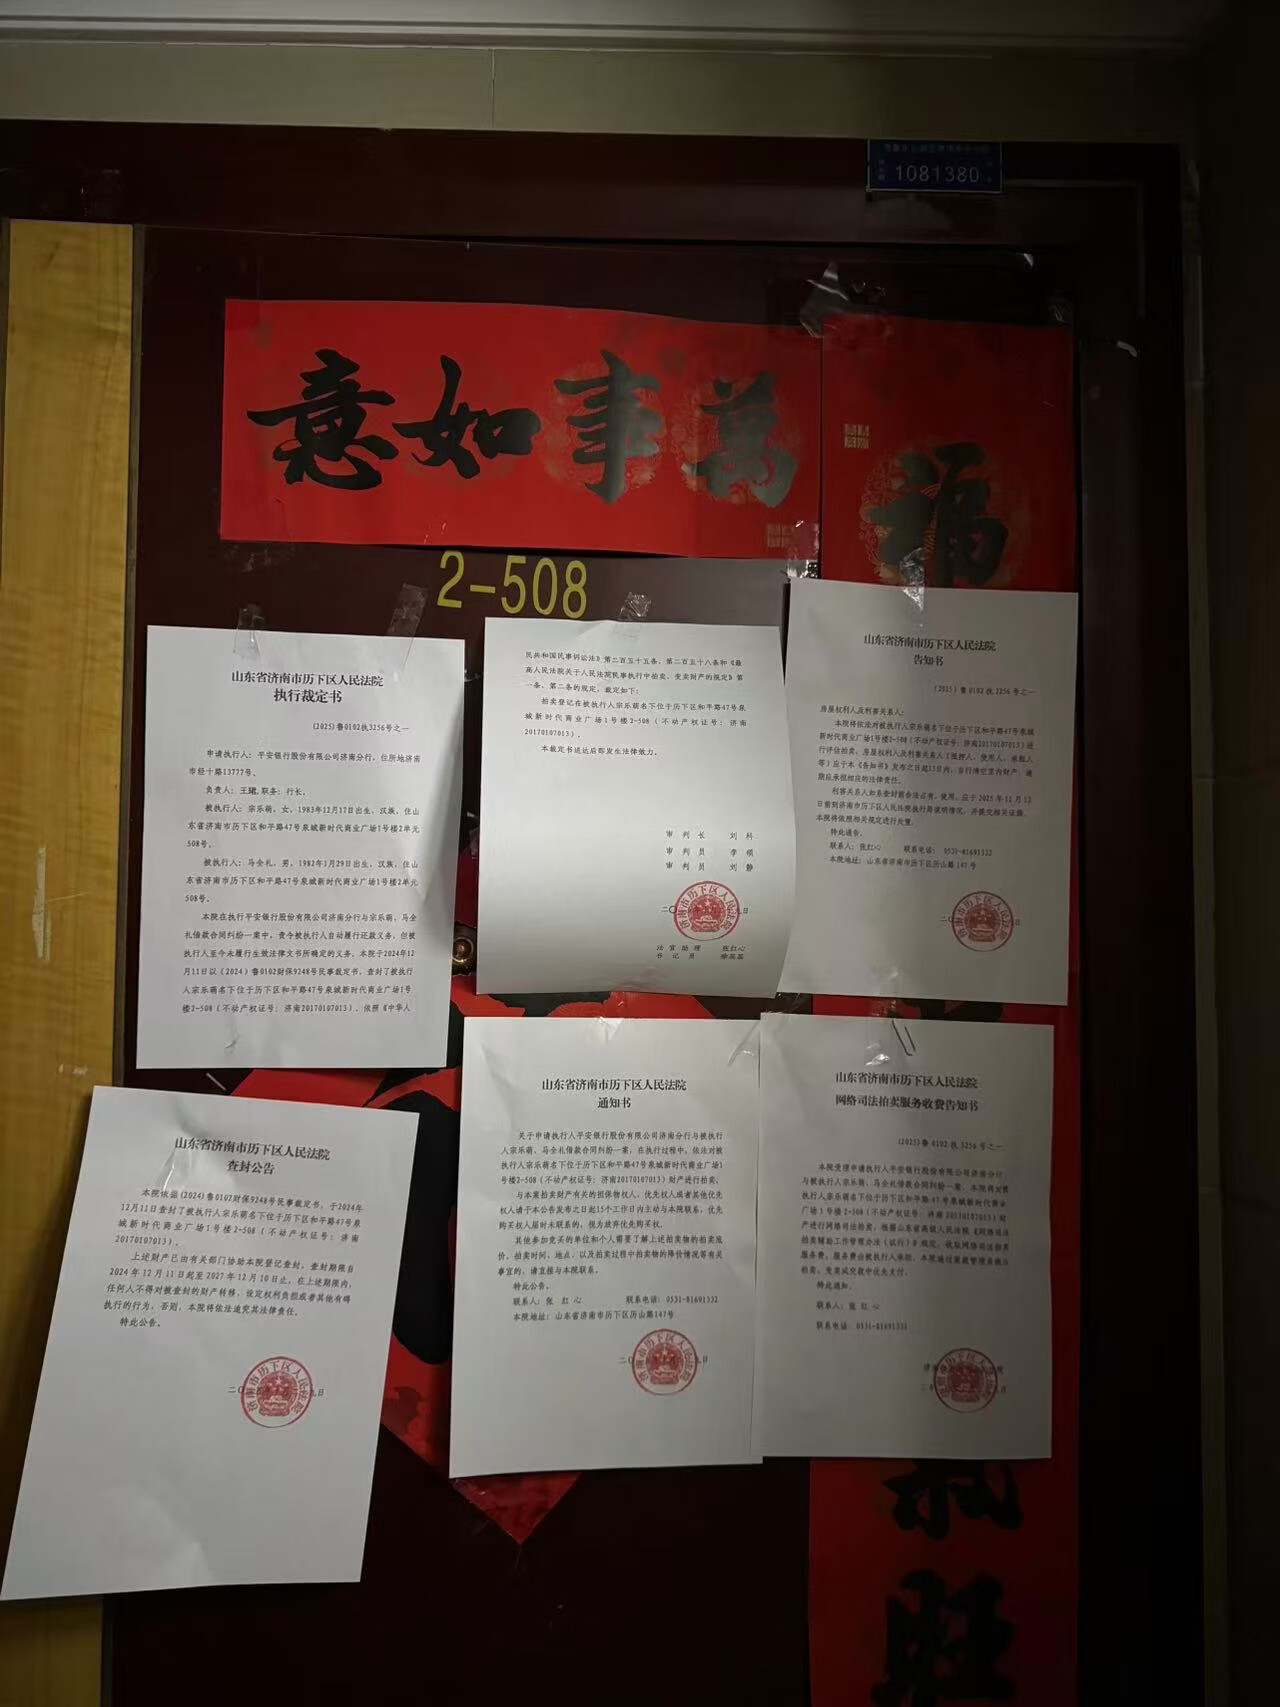 1081380
意如事萬
福
2-508
山东省济南市历下区人民法院
执行裁定书
(2025)鲁0102执3256号之一
申请执行人：平安银行股份有限公司济南分行，住所地济南
市经十路13777号。
负责人：王珺，职务：行长。
被执行人：宗乐萌，女，1983年12月17日出生，汉族，住山
东省济南市历下区和平路47号泉城新时代商业广场1号楼2单元
508号。
被执行人：马全礼，男，1982年1月29日出生，汉族，住山
东省济南市历下区和平路47号泉城新时代商业广场1号楼2单元
508号。
本院在执行平安银行股份有限公司济南分行与宗乐萌、马全
礼借款合同纠纷一案中，责令被执行人自动履行还款义务，但被
执行人至今未履行生效法律文书所确定的义务。本院于2024年12
月11日以（2024）鲁0102财保9248号民事裁定书，查封了被执行
人宗乐萌名下位于历下区和平路47号泉城新时代商业广场1号
楼2-508（不动产权证号：济南20170107013）。依照《中华人
民共和国民事诉讼法》第二百五十五条、第二百五十八条和《最
高人民法院关于人民法院民事执行中拍卖、变卖财产的规定》第
一条、第二条的规定，裁定如下：
拍卖登记在被执行人宗乐萌名下位于历下区和平路47号泉
城新时代商业广场1号楼2-508（不动产权证号：济南
20170107013）。
本裁定书送达后即发生法律效力。
审 判 长 刘 科
审 判 员 李 领
审 判 员 刘 静
济南市历下区人民法院
法 官 助 理 张红心
书 记 员
山东省济南市历下区人民法院
告知书
(2025)鲁0102执3256号之一
房屋权利人及利害关系人：
本院将依法对被执行人宗乐萌名下位于历下区和平路47号泉城
新时代商业广场1号楼2-508（不动产权证号：济南20170107013）进
行评估拍卖，房屋权利人及利害关系人（抵押人、使用人、承租人
等）应于本《告知书》发布之日起15日内，自行清空室内财产，逾
期应承担相应的法律责任。
利害关系人如系查封前合法占有、使用，应于2025年11月13
日前到济南市历下区人民法院执行局说明情况，并提交相关证据。
本院将依照相关规定进行处置。
特此通告。
联系人：张红心 联系电话：0531-81691332
本院地址：山东省济南市历下区历山路147号
济南市历下区人民法院
山东省济南市历下区人民法院
查封公告
本院依据(2024)鲁0102财保9248号民事裁定书，于2024年
12月11日查封了被执行人宗乐萌名下位于历下区和平路47号泉
城新时代商业广场1号楼2-508（不动产权证号：济南
20170107013）。
上述财产已由有关部门协助本院登记查封，查封期限自
2024年12月11日起至2027年12月10日止，在上述期限内，
任何人不得对被查封的财产转移、设定权利负担或者其他有碍
执行的行为，否则，本院将依法追究其法律责任。
特此公告。
济南市历下区人民法院
山东省济南市历下区人民法院
通知书
关于申请执行人平安银行股份有限公司济南分行与被执行
人宗乐萌、马全礼借款合同纠纷一案，在执行过程中，依法对被
执行人宗乐萌名下位于历下区和平路47号泉城新时代商业广场1
号楼2-508（不动产权证号：济南20170107013）财产进行拍卖。
与本案拍卖财产有关的担保物权人、优先权人或者其他优先
权人请于本公告发布之日起15个工作日内主动与本院联系，优先
购买权人届时未联系的，视为放弃优先购买权。
其他参加竞买的单位和个人需要了解上述拍卖物的拍卖底
价、拍卖时间、地点、以及拍卖过程中拍卖物的降价情况等有关
事宜的，请直接与本院联系。
特此公告。
联系人：张 红 心 联系电话：0531-81691332
本院地址：山东省济南市历下区历山路147号
济南市历下区人民法院
山东省济南市历下区人民法院
网络司法拍卖服务收费告知书
(2025)鲁0102执3256号之一
本院受理申请执行人平安银行股份有限公司济南分行
与被执行人宗乐萌、马全礼借款合同纠纷一案，本院将对被
执行人宗乐萌名下位于历下区和平路47号泉城新时代商业
广场1号楼2-508（不动产权证号：济南20170107013）财
产进行网络司法拍卖，根据山东省高级人民法院《网络司法
拍卖辅助工作管理办法（试行）》规定，收取网络司法拍卖
服务费，服务费由被执行人承担，本院通过案款管理系统从
拍卖、变卖成交款中优先支付。
特此通知。
联系人：张 红 心
联系电话：0531-81691332
旺